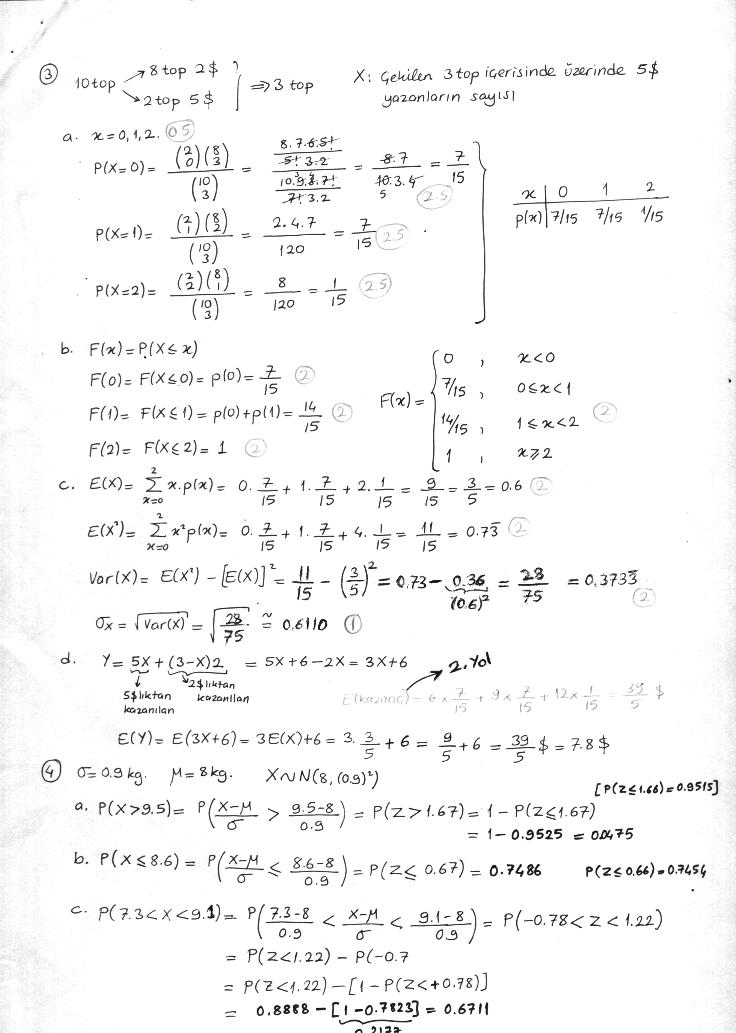 ③ 10 top → 8 top 2$ → 2 top 5$ ⇒ 3 top X: Çekilen 3 top içerisinde üzerinde 5$
yazanların sayısı
a. x=0,1,2. 0.5
P(X=0) = (2 0)(8 3) / (10 3) = (8.7.6.5! / 5!3.2) / (10.9.8.7! / 7!3.2) = 8.7 / 10.3.4 = 7/15 2.5
x | 0 1 2
p(x) | 7/15 7/15 1/15
P(X=1) = (2 1)(8 2) / (10 3) = 2.4.7 / 120 = 7/15 2.5
P(X=2) = (2 2)(8 1) / (10 3) = 8/120 = 1/15 2.5
b. F(x) = P(X≤x)
F(0) = F(X≤0) = p(0) = 7/15 2
F(1) = F(X≤1) = p(0)+p(1) = 14/15 2
F(2) = F(X≤2) = 1 2
F(x) = { 0 , x<0
7/15 , 0≤x<1
14/15 , 1≤x<2 2
1 , x≥2
c. E(X) = Σ x=0 2 x.p(x) = 0.7/15 + 1.7/15 + 2.1/15 = 9/15 = 3/5 = 0.6 2
E(X²) = Σ x=0 2 x²p(x) = 0.7/15 + 1.7/15 + 4.1/15 = 11/15 = 0.73̄ 2
Var(X) = E(X²) - [E(X)]² = 11/15 - (3/5)² = 0.73 - 0.36 = 28/75 = 0,3733̄ 2
(0.6)²
σx = √Var(X) = √28/75 ≅ 0.6110 1
d. Y = 5X + (3-X)2 = 5X+6-2X = 3X+6 2. Yol
5$lıktan kazanılan 2$lıktan kazanılan
E(kazanç) = 6 x 7/15 + 9 x 7/15 + 12 x 1/15 = 39/5 $
E(Y) = E(3X+6) = 3E(X)+6 = 3.3/5 + 6 = 9/5 + 6 = 39/5 $ = 7.8 $
④ σ=0.9 kg. M=8 kg. X∼N(8,(0.9)²)
[P(Z≤1.66)=0.9515]
a. P(X>9.5) = P(X-M/σ > 9.5-8/0.9) = P(Z>1.67) = 1 - P(Z≤1.67)
= 1 - 0.9525 = 0.0475
b. P(X≤8.6) = P(X-M/σ ≤ 8.6-8/0.9) = P(Z≤0.67) = 0.7486 P(Z≤0.66)=0.7454
c. P(7.3<X<9.1) = P(7.3-8/0.9 < X-M/σ < 9.1-8/0.9) = P(-0.78<Z<1.22)
= P(Z<1.22) - P(-0.7
= P(Z<1.22) - [1 - P(Z<+0.78)]
= 0.8888 - [1 - 0.7823] = 0.6711